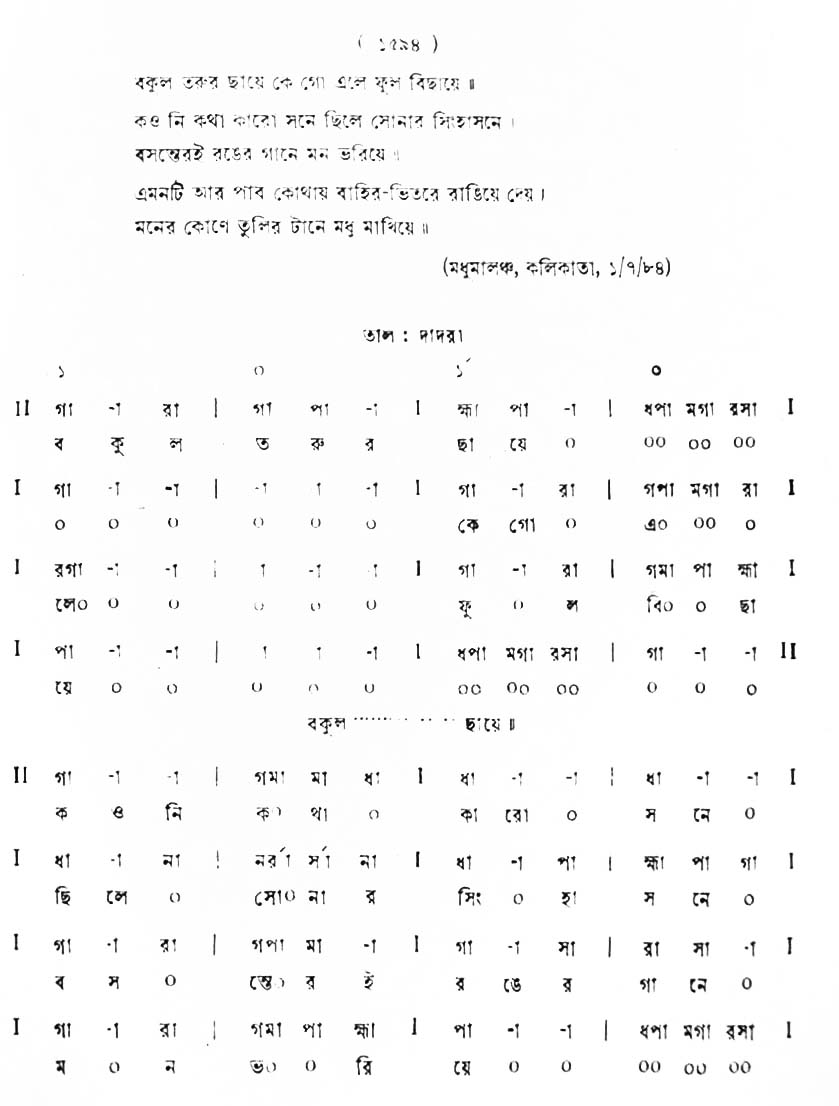 ( ১৫৯৪ )
বকুল তরুর ছায়ে কে গো এলে ফুল বিছায়ে ॥
কও নি কথা কারো সনে ছিলে সোনার সিংহাসনে ।
বসন্তেরই রঙের গানে মন ভরিয়ে ॥
এমনটি আর পাব কোথায় বাহির-ভিতরে রাঙিয়ে দেয় ।
মনের কোণে তুলির টানে মধু মাখিয়ে ॥
(মধুমালঞ্চ, কলিকাতা, ১/৭/৮৪)
তাল : দাদরা
১ ০ ১´ ০
II গা -া রা | গা পা -া I হ্মা পা -া | ধপা মগা রসা I
ব কু ল ত রু র ছা য়ে ০ ০০ ০০ ০০
I গা -া -া | -া া -া I গা -া রা | গপা মগা রা I
০ ০ ০ ০ ০ ০ কে গো ০ এ০ ০০ ০
I রগা -া -া | া -া া I গা -া রা | গমা পা হ্মা I
লে০ ০ ০ ০ ০ ০ ফু ০ ল বি০ ০ ছা
I পা -া -া | া া -া I ধপা মগা রসা | গা -া -া II
য়ে ০ ০ ০ ০ ০ ০০ ০০ ০০ ০ ০ ০
বকুল ............... ছায়ে ॥
II গা -া -া | গমা মা ধা I ধা -া -া | ধা -া -া I
ক ও নি ক০ থা ০ কা রো ০ স নে ০
I ধা -া না | নর্রা র্সা না I ধা -া পা | হ্মা পা গা I
ছি লে ০ সো০ না র সিং ০ হা স নে ০
I গা -া রা | গপা মা -া I গা -া সা | রা সা -া I
ব স ০ ন্তে০ র ই র ঙে র গা নে ০
I গা -া রা | গমা পা হ্মা I পা -া -া | ধপা মগা রসা I
ম ০ ন ভ০ ০ রি য়ে ০ ০ ০০ ০০ ০০